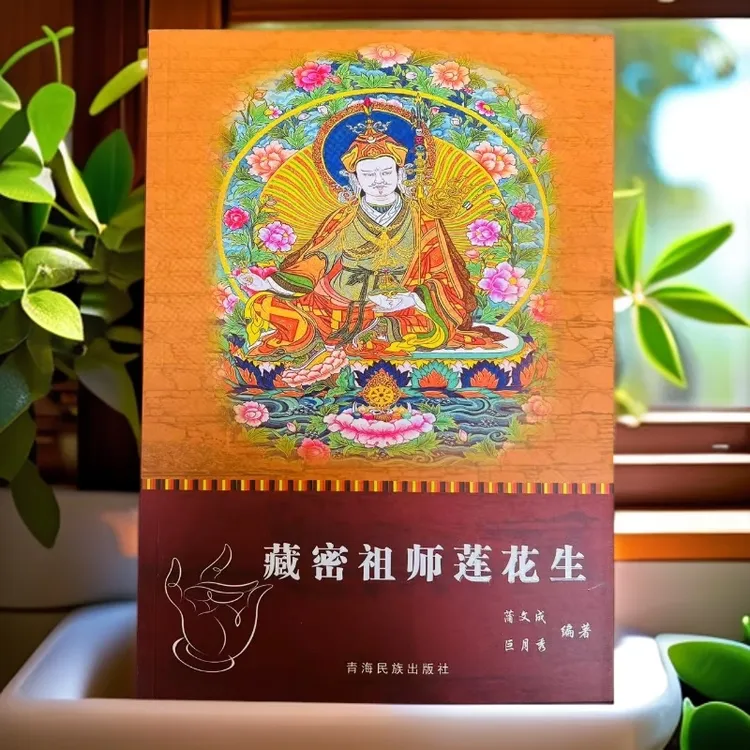 藏密祖师莲花生
蒲文成
巨月秀
编著
青海民族出版社